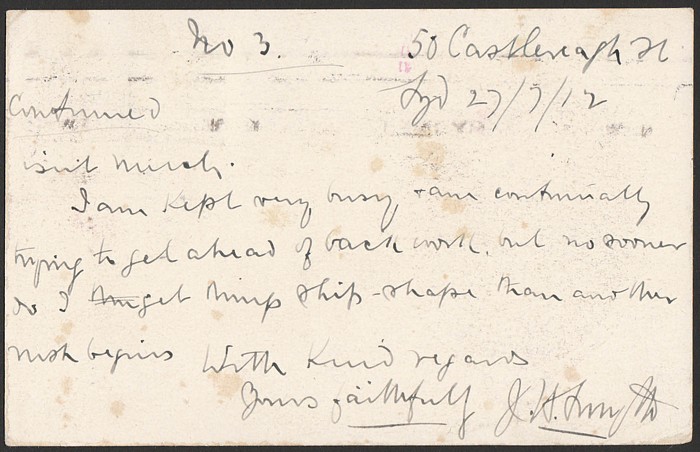 No 3. 50 Castlereagh St
Syd 27/7/12
Continued
isnt much.
I am kept very busy & am continually
trying to get ahead of back work, but no sooner
do I get things ship-shape than another
rush begins With Kind regards
Yours faithfully J. H. Smyth